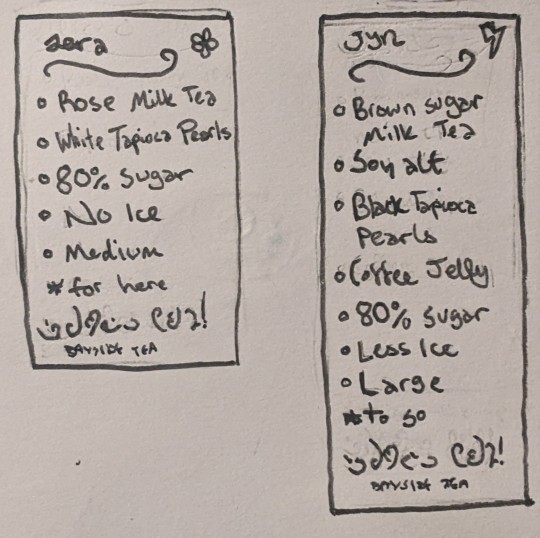 aera
• Rose Milk Tea
• White Tapioca Pearls
• 80% Sugar
• No Ice
• Medium
* for here
BAYSIDE TEA
Jyn
• Brown sugar
Milk Tea
• Soy alt
• Black Tapioca
Pearls
• Coffee Jelly
• 80% Sugar
• Less Ice
• Large
* to go
BAYSIDE TEA